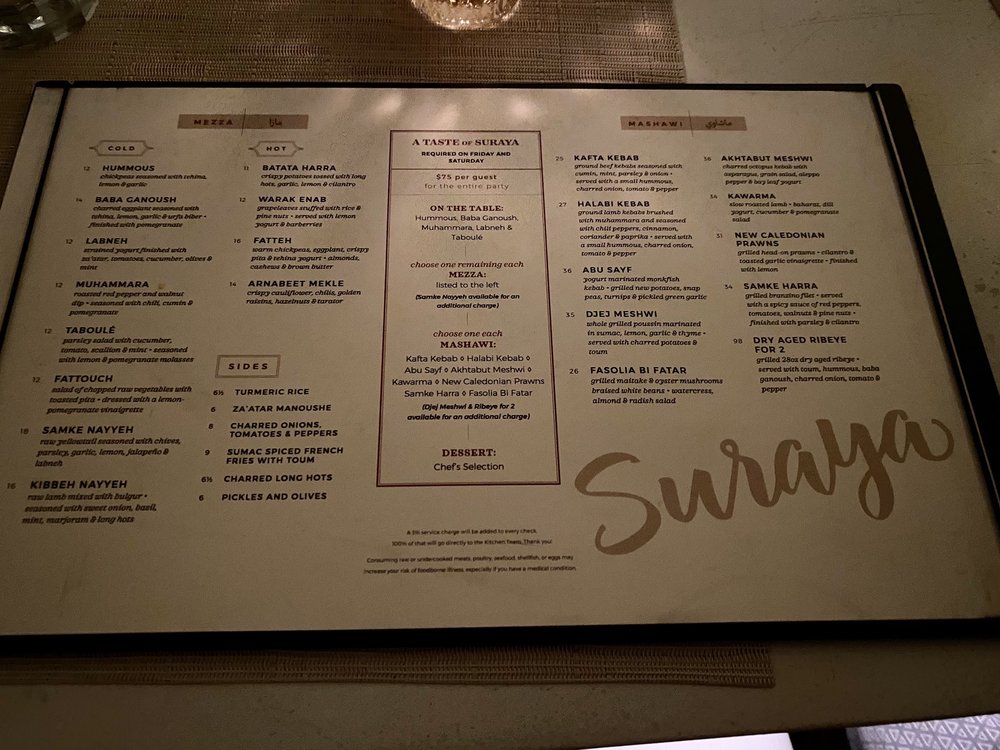 MEZZA مازا
COLD
12 HUMMOUS
chickpeas seasoned with tehina,
lemon & garlic
14 BABA GANOUSH
charred eggplant seasoned with
tehina, lemon, garlic & urfa biber •
finished with pomegranate
12 LABNEH
strained yogurt finished with
za'atar, tomatoes, cucumber, olives &
mint
12 MUHAMMARA
roasted red pepper and walnut
dip • seasoned with chili, cumin &
pomegranate
12 TABOULÉ
parsley salad with cucumber,
tomato, scallion & mint • seasoned
with lemon & pomegranate molasses
12 FATTOUCH
salad of chopped raw vegetables with
toasted pita • dressed with a lemon-
pomegranate vinaigrette
18 SAMKE NAYYEH
raw yellowtail seasoned with chives,
parsley, garlic, lemon, jalapeño &
labneh
16 KIBBEH NAYYEH
raw lamb mixed with bulgur •
seasoned with sweet onion, basil,
mint, marjoram & long hots
HOT
11 BATATA HARRA
crispy potatoes tossed with long
hots, garlic, lemon & cilantro
12 WARAK ENAB
grapeleaves stuffed with rice &
pine nuts • served with lemon
yogurt & barberries
16 FATTEH
warm chickpeas, eggplant, crispy
pita & tehina yogurt • almonds,
cashews & brown butter
14 ARNABEET MEKLE
crispy cauliflower, chilis, golden
raisins, hazelnuts & tarator
SIDES
6½ TURMERIC RICE
6 ZA'ATAR MANOUSHE
8 CHARRED ONIONS,
TOMATOES & PEPPERS
9 SUMAC SPICED FRENCH
FRIES WITH TOUM
6½ CHARRED LONG HOTS
6 PICKLES AND OLIVES
A TASTE OF SURAYA
REQUIRED ON FRIDAY AND
SATURDAY
$75 per guest
for the entire party
ON THE TABLE:
Hummous, Baba Ganoush,
Muhammara, Labneh &
Taboulé
choose one remaining each
MEZZA:
listed to the left
(Samke Nayyeh available for an
additional charge)
choose one each
MASHAWI:
Kafta Kebab ◊ Halabi Kebab ◊
Abu Sayf ◊ Akhtabut Meshwi ◊
Kawarma ◊ New Caledonian Prawns
Samke Harra ◊ Fasolia Bi Fatar
(Djej Meshwi & Ribeye for 2
available for an additional charge)
DESSERT:
Chef's Selection
A 5% service charge will be added to every check.
100% of that will go directly to the Kitchen Team. Thank you!
Consuming raw or undercooked meats, poultry, seafood, shellfish, or eggs may
increase your risk of foodborne illness, especially if you have a medical condition.
MASHAWI مشاوي
25 KAFTA KEBAB
ground beef kebabs seasoned with
cumin, mint, parsley & onion •
served with a small hummous,
charred onion, tomato & pepper
27 HALABI KEBAB
ground lamb kebabs brushed
with muhammara and seasoned
with chili peppers, cinnamon,
coriander & paprika • served with
a small hummous, charred onion,
tomato & pepper
36 ABU SAYF
yogurt marinated monkfish
kebab • grilled new potatoes, snap
peas, turnips & pickled green garlic
35 DJEJ MESHWI
whole grilled poussin marinated
in sumac, lemon, garlic & thyme •
served with charred potatoes &
toum
26 FASOLIA BI FATAR
grilled maitake & oyster mushrooms
braised white beans • watercress,
almond & radish salad
36 AKHTABUT MESHWI
charred octopus kebab with
asparagus, grain salad, aleppo
pepper & bay leaf yogurt
34 KAWARMA
slow roasted lamb • baharat, dill
yogurt, cucumber & pomegranate
salad
31 NEW CALEDONIAN
PRAWNS
grilled head-on prawns • cilantro &
toasted garlic vinaigrette • finished
with lemon
34 SAMKE HARRA
grilled branzino filet • served
with a spicy sauce of red peppers,
tomatoes, walnuts & pine nuts •
finished with parsley & cilantro
98 DRY AGED RIBEYE
FOR 2
grilled 28oz dry aged ribeye •
served with toum, hummous, baba
ganoush, charred onion, tomato &
pepper
Suraya